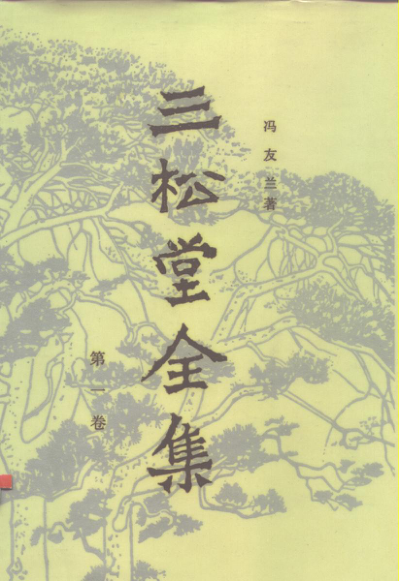 冯友兰著
三松堂全集
第一卷